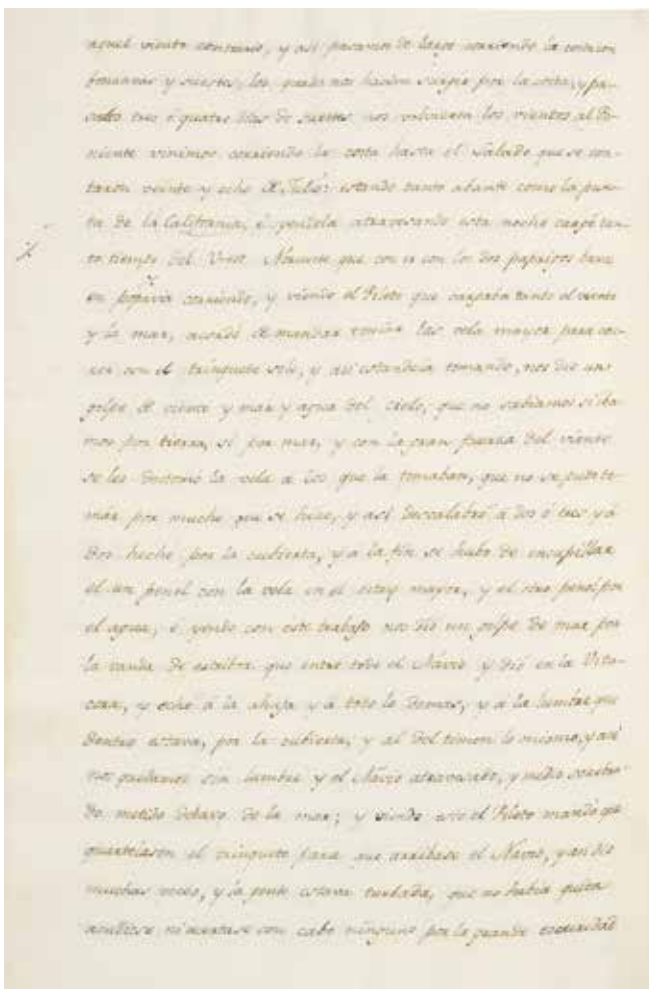 aquel viento contrario, y asi pasamos de largo corriendo la costa con
y suestes, los quales nos hacian surgir por la costa, y pa-
sados tres ó quatro dias de suestes nos volvieron los vientos al Po-
niente vinimos corriendo la costa hasta el Salado que se con-
taron veinte y ocho de Julio: estando tanto abante como la pun-
ta de la California, é yendola atravesando esta noche cargó tan-
to tiempo del Vest Norueste que con ir con los dos papaigos baxos
en popa via corriendo, y viendo el Piloto que cargaba tanto el viento
y la mar, acordó de mandar tomar las vela mayor para cor-
rer con el trinquete solo, y asi estandola tomando, nos dio un
golpe de viento y mar y agua del cielo, que no sabiamos si iba
mos por tierra, si por mar, y con la gran fuerza del viento
se les la vela á los que la tomaban, que no se pudo to-
mar por mucho que se hizo, y asi descalabró á dos ó tres y á
dos hechó por la cubierta, y á la fin se hubo de encapillar
el un penol con la vela en el estay mayor, y el otro penol por
el agua, é yendo con este trabajo nos dió un golpe de mar por
la vanda de estribor que entró todo el Návio y dió en la Vita-
cora, y echó á la ahuja y á todo lo demas, y á la lumbre que
dentro estava, por la cubierta, y al del timon lo mismo, y asi
nos quedamos sin lumbre y el Návio atravesado, y medio
do metido debaxo de la mar; y viendo esto el Piloto mandó que
el trinquete para que arribase el Návio, y
muchas voces, y la gente estava turbada, que no habia quien
acudiese ni acertase con cabo ninguno por la grande escuridad